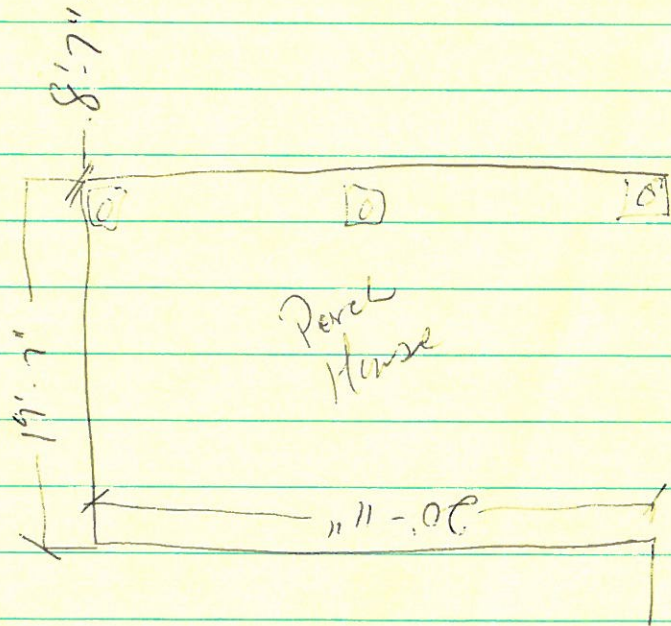 8'-7"
19'-7"
Porch
House
20'-11"